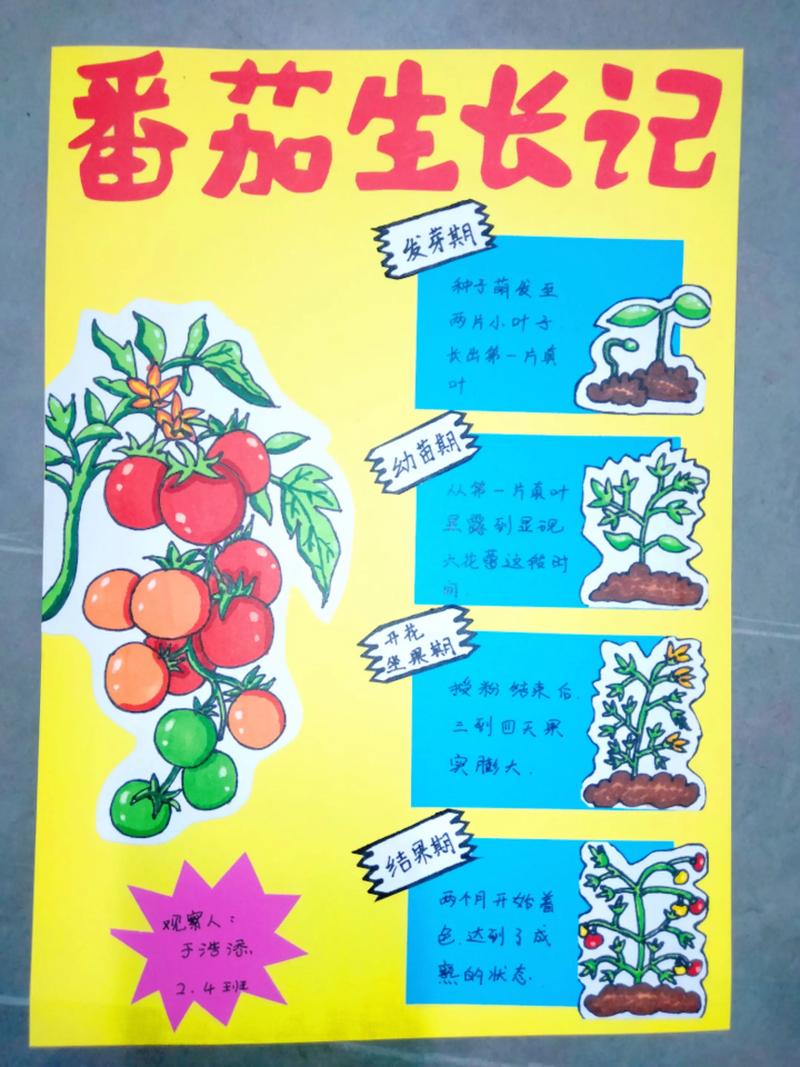 番茄生长记
发芽期
种子萌发至
两片小叶子
长出第一片真
叶
幼苗期
从第一片真叶
显露到显现
大花蕾这段时
间.
开花
坐果期
授粉结束后.
三到四天果
实膨大.
结果期
两个月开始着
色.达到了成
熟的状态.
观察人：
于浩添
2.4班